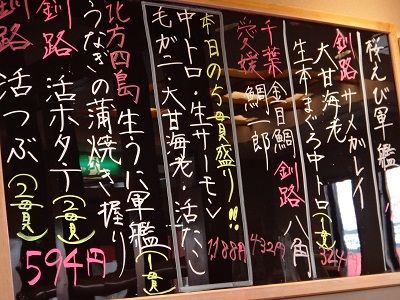 桜えび軍艦
釧路 サメガレイ
大甘海老
生本まぐろ中トロ(一貫)
324円
千葉 金目鯛 釧路 八角
愛媛 鯛一郎
432円
本日の5貫盛り!!
中トロ・生サーモン
毛がに・大甘海老・活たこ
1,188円
北方四島 生うに軍艦(一貫)
うなぎの蒲焼き握り
釧路 活ホタテ(2貫)
釧路 活つぶ(2貫)
594円